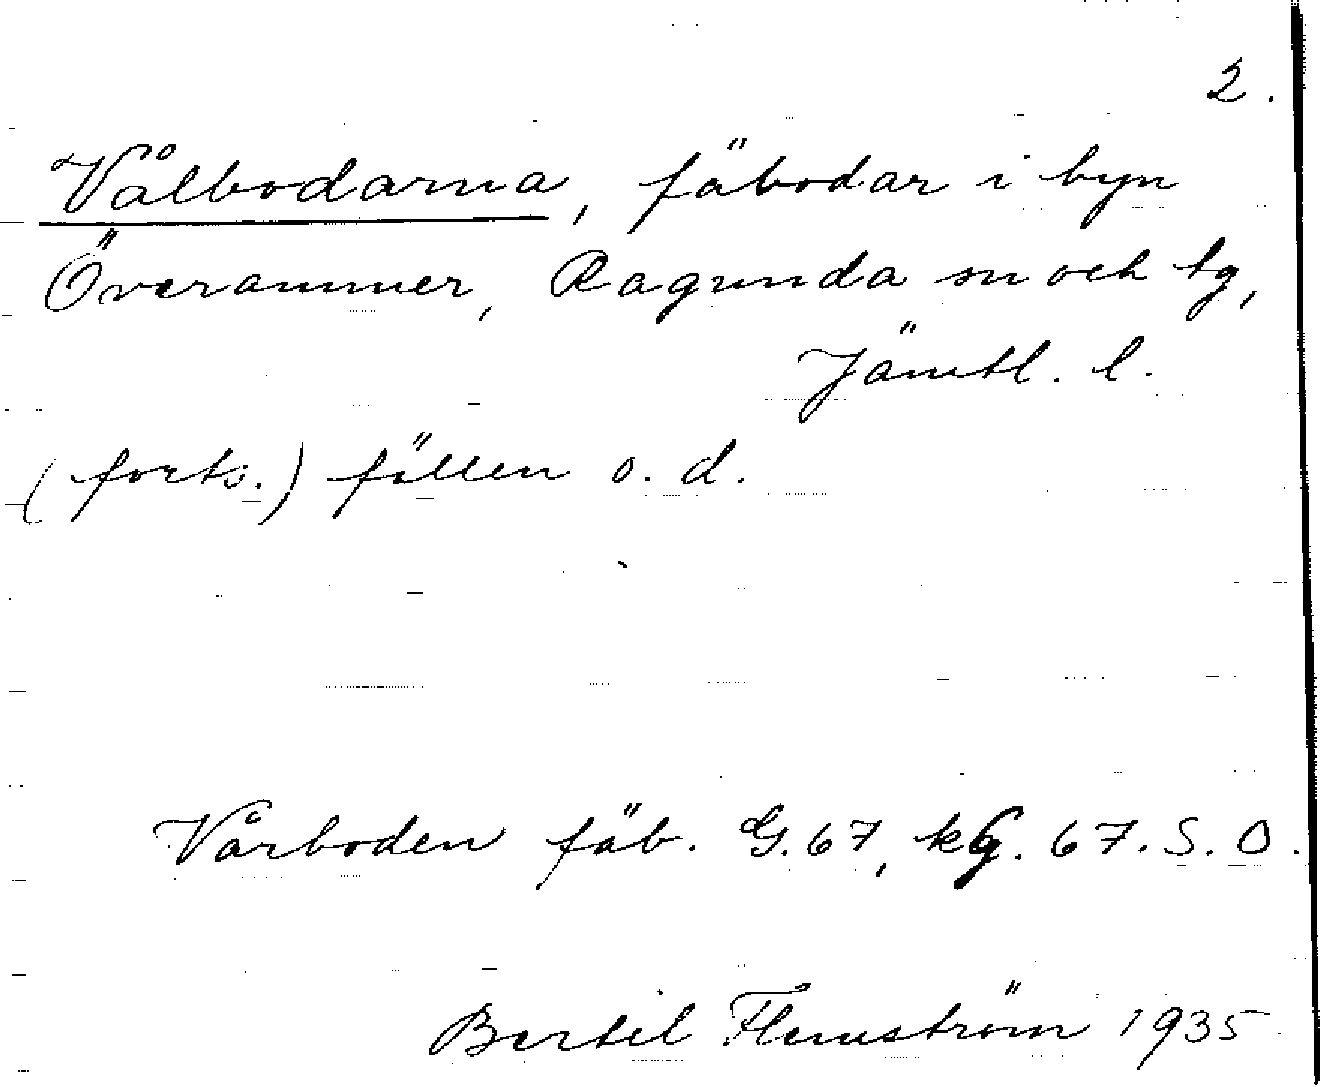 2.
Vålbodarna, fäbodar i byn
Överammer, Ragunda sn och tg,
Jämtl. l.
(forts.) fällen o. d.
Vårboden fäb. G. 67, kg. 67. S. O.
Bertil Flemström 1935